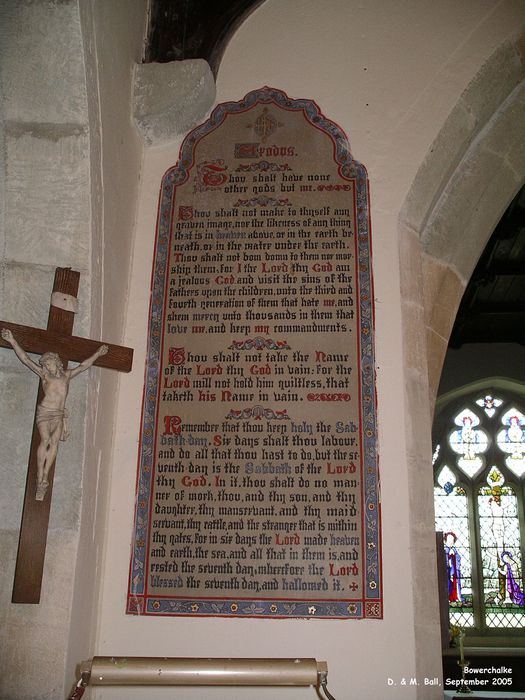 Exodus.
Thou shalt have none
other gods but me.
Thou shalt not make to thyself any
graven image, nor the likeness of any thing
that is in heaven above, or in the earth be
neath, or in the water under the earth.
Thou shalt not bow down to them nor wor
ship them, for I the Lord thy God am
a jealous God, and visit the sins of the
fathers upon the children, unto the third and
fourth generation of them that hate me, and
shew mercy unto thousands in them that
love me, and keep my commandments.
Thou shalt not take the Name
of the Lord thy God in vain: for the
Lord will not hold him guiltless, that
taketh his Name in vain.
Remember that thou keep holy the Sab
bath-day. Six days shalt thou labour,
and do all that thou hast to do, but the se
venth day is the Sabbath of the Lord
thy God. In it, thou shalt do no man
ner of work, thou, and thy son, and thy
daughter, thy manservant, and thy maid
servant, thy cattle, and the stranger that is within
thy gates. For in six days the Lord made heaven
and earth, the sea, and all that in them is, and
rested the seventh day, wherefore the Lord
blessed the seventh day, and hallowed it.
Bowerchalke
D. & M. Ball, September 2005